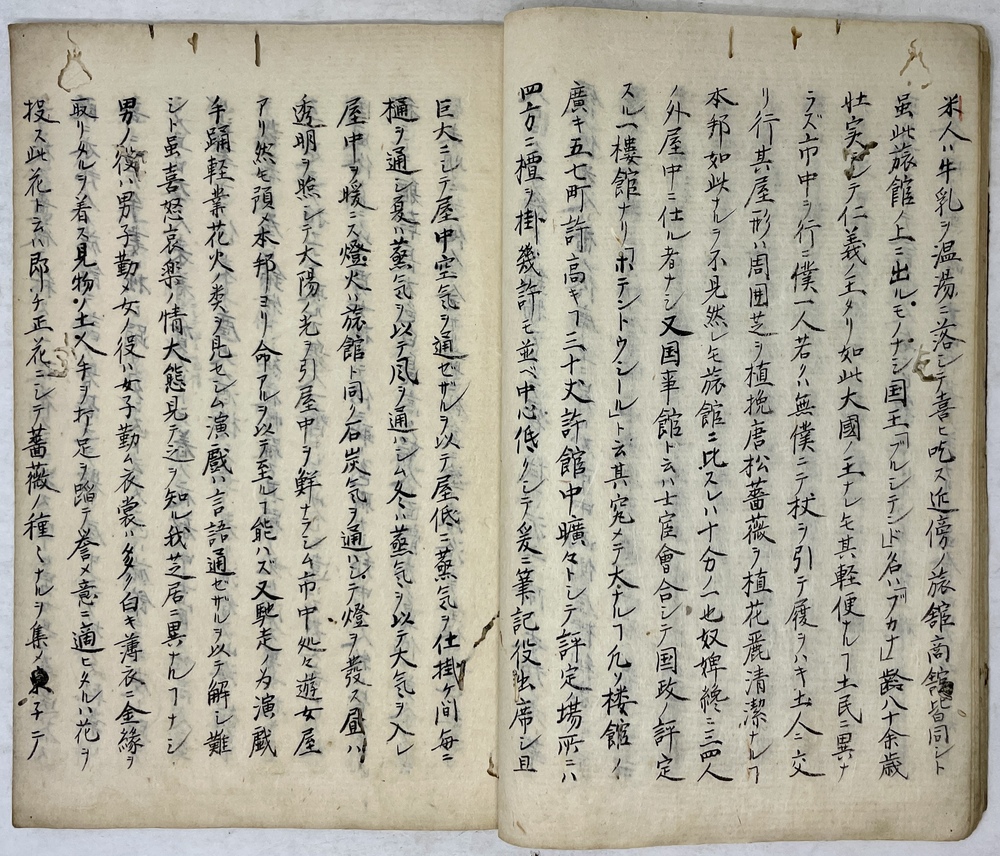 米人ハ牛乳ヲ温湯ニ落シテ喜ヒ吃ス近傍ノ旅舘商舘皆同シト
虽此旅館ノ上ニ出ルモノナシ国王「ブルシテンド」名ハ「ブカナ」齢八十余歳
壮実ニシテ仁義ノ主タリ如此大國ノ王ナレ𪜈其軽便ナルヿ土民ニ異ナ
ラズ市中ヲ行ニ僕一人若クハ無僕ニテ杖ヲ引テ屐ヲハキ土人ニ交
リ行其屋形ハ周囲芝ヲ植挽唐松薔薇ヲ植花麗清潔ナルヿ
本邦如此ナルヲ不見然レ𪜈旅館ニ比スレハ十分ノ一也奴婢終ニ三四人
ノ外屋中ニ仕ル者ナシ又国事館ト云ハ士官會合シテ国政ノ評定
スル一樓館ナリ「ホテントウシール」ト云其宛メテ大ナルヿ九ノ楼館ノ
廣キ五七町許高キヿ三十丈許館中曠々トシテ評定ノ場所ニハ
四方ニ檀ヲ掛幾許モ並ベ中心低クシテ爰ニ筆記役出席シ且
巨大ニシテ屋中空気ヲ通ゼザルヲ以テ屋低ニ蒸気ヲ仕掛ケ間毎ニ
樋ヲ通シ夏ハ蒸気ヲ以テ風ヲ通ハシム冬ハ蒸気ヲ以テ大気ヲ入レ
屋中ヲ暖ニス燈火ハ旅館ト同ク石炭気ヲ通ハシテ燈ヲ發ス昼ハ
透明ヲ照シテ大陽ノ光ヲ引屋中ヲ鮮ナラシム市中処々遊女屋
アリ然𪜈預メ本邦ヨリ命アルヲ以テ至ルヿ能ハズ又馳走ノ為演戯
手踊軽業花火ノ类ヲ見セシム演戲ハ言語通ゼザルヲ以テ解シ難
シト虽喜怒哀楽ノ情大態見テ之ヲ知ル我芝居ニ異ナルヿナシ
男ノ役ハ男子勤メ女ノ役ハ女子勤ム衣裳ハ多ク白キ薄衣ニ金縁ヲ
取リタルヲ着ス見物ノ土人手ヲ打足ヲ踏テ誉メ意ニ適ヒタルハ花ヲ
投ス此花ト云ハ即チ正花ニシテ薔薇ノ種々ナルヲ集メ 子テ